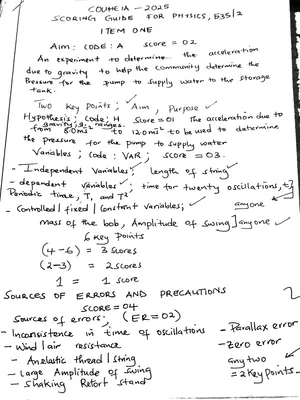 COUHEIA - 2025
SCORING GUIDE FOR PHYSICS, 535/2
ITEM ONE
Aim: CODE: A score = 02
An experiment to determine the acceleration
due to gravity to help the community determine the
pressure for the pump to supply water to the storage
tank.
Two key points; Aim, Purpose
Hypothesis; Code; H Score = 01 The acceleration due to
gravity, g ranges
from 8.0ms⁻² to 12.0ms⁻² to be used to determine
the pressure for the pump to supply water
Variables; Code: VAR; score = 03.
- Independent Variables; length of string
- dependent variables; time for twenty oscillations, t,
Periodic time, T, and T²
- Controlled/fixed/constant variables; anyone
mass of the bob, Amplitude of swing anyone
6 key points
(4-6) = 3 scores
(2-3) = 2 scores
1 = 1 score
SOURCES OF ERRORS AND PRECAUTIONS
SCORE = 04
Sources of errors; (ER = 02)
- Inconsistence in time of oscillations
- Wind/air resistance
- Anelastic thread/string
- Large Amplitude of swing
- Shaking Retort stand
- Parallax error
- Zero error
any two
= 2 key points